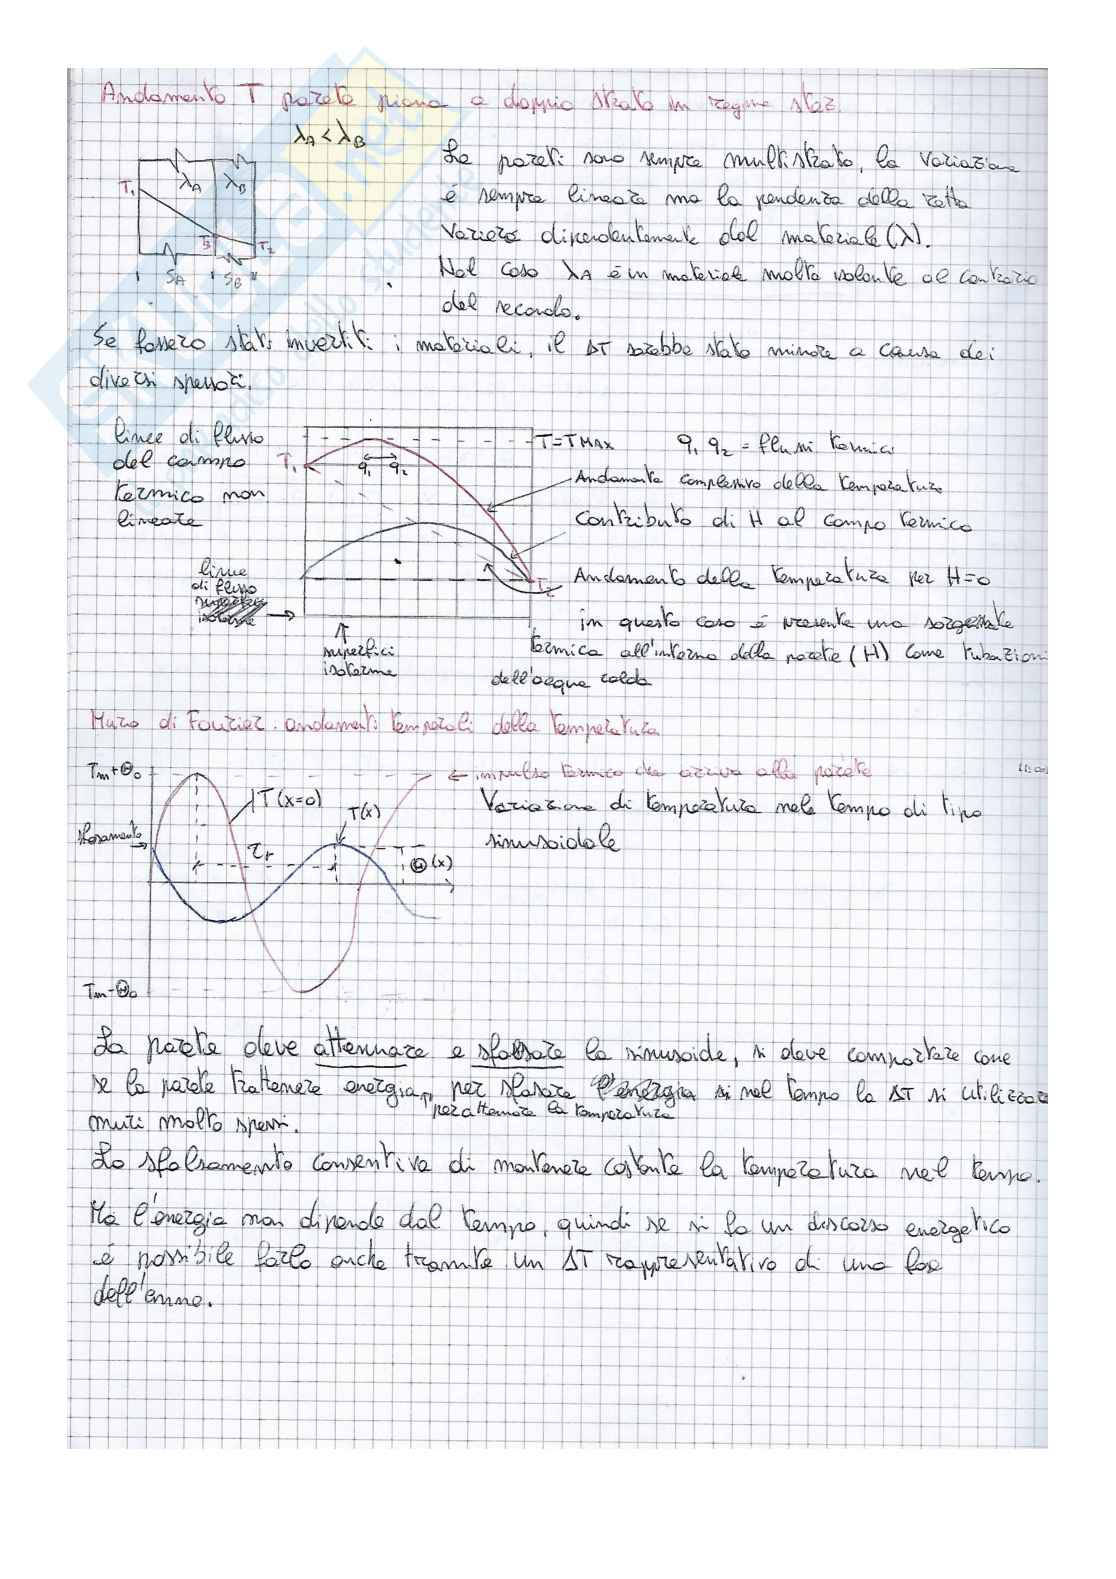 Andamento T parete piana a doppio strato in regime staz.
λA < λB
La pareti sono sempre multistrato, la variazione
è sempre lineare ma la pendenza della retta
varierà dipendentemente dal materiale (λ).
Nel caso λA è un materiale molto isolante al contrario
del secondo.
T1
λA
λB
T3
T2
SA
SB
Se fossero stati invertiti i materiali, il ΔT sarebbe stato minore a causa dei
diversi spessori.
linee di flusso
del campo
termico non
lineare
T1
q1
q2
T=TMAX
q1 q2 = flussi termici
Andamento complessivo della temperatura
Contributo di H al campo termico
T2
Andamento della temperatura per H=0
linee
di flusso
superfici
isoterme
in questo caso è presente una sorgente
termica all'interno della parete (H) come tubazioni
dell'acqua calda
Muro di Fourier. andamenti temporali della temperatura
Tm+Θ0
T(x=0)
T(x)
← impulso termico che arriva alla parete
Variazione di temperatura nel tempo di tipo
sinusoidale
sfasamento
τr
Θ(x)
Tm-Θ0
La parete deve attenuare e sfalsare la sinusoide, si deve comportare come
se la parete trattenere energia, per sfasare l'energia si nel tempo la ΔT si utilizzare
per attenuare la temperatura
muri molto spessi.
Lo sfalsamento consentiva di mantenere costante la temperatura nel tempo.
Ma l'energia non dipende dal tempo, quindi se si fa un discorso energetico
è possibile farlo anche tramite un ΔT rappresentativo di una fase
dell'anno.